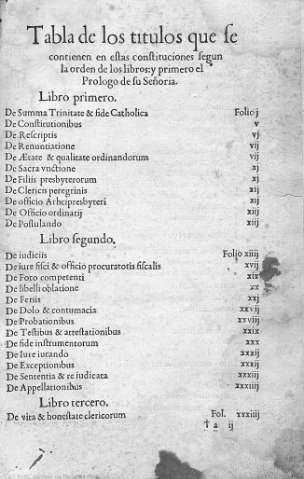 Tabla de los titulos que se
contienen en estas constituciones segun
la orden de los libros: y primero el
Prologo de su Señoria.
Libro primero.
De Summa Trinitate & fide Catholica Folio j
De Constitutionibus v
De Rescriptis vj
De Renuntiatione vij
De Ætate & qualitate ordinandorum vij
De Sacra vnctione xj
De Filiis presbyterorum xj
De Clericis peregrinis xij
De officio Archipresbyteri xij
De Officio ordinatij xiij
De Postulando xiij
Libro segundo.
De iudiciis Folio xiiij
De iure fisci & officio procuratotis fiscalis xvij
De Foro competenti xix
De libelli oblatione xx
De Feriis xxj
De Dolo & contumacia xxvij
De Probationibus xxviij
De Testibus & attestationibus xxix
De fide instrumentorum xxx
De Iure iurando xxxij
De Exceptionibus xxxij
De Sententia & re iudicata xxxiij
De Appellationibus xxxiiij
Libro tercero.
De vita & honestate clericorum Fol. xxxiiij
† a ij